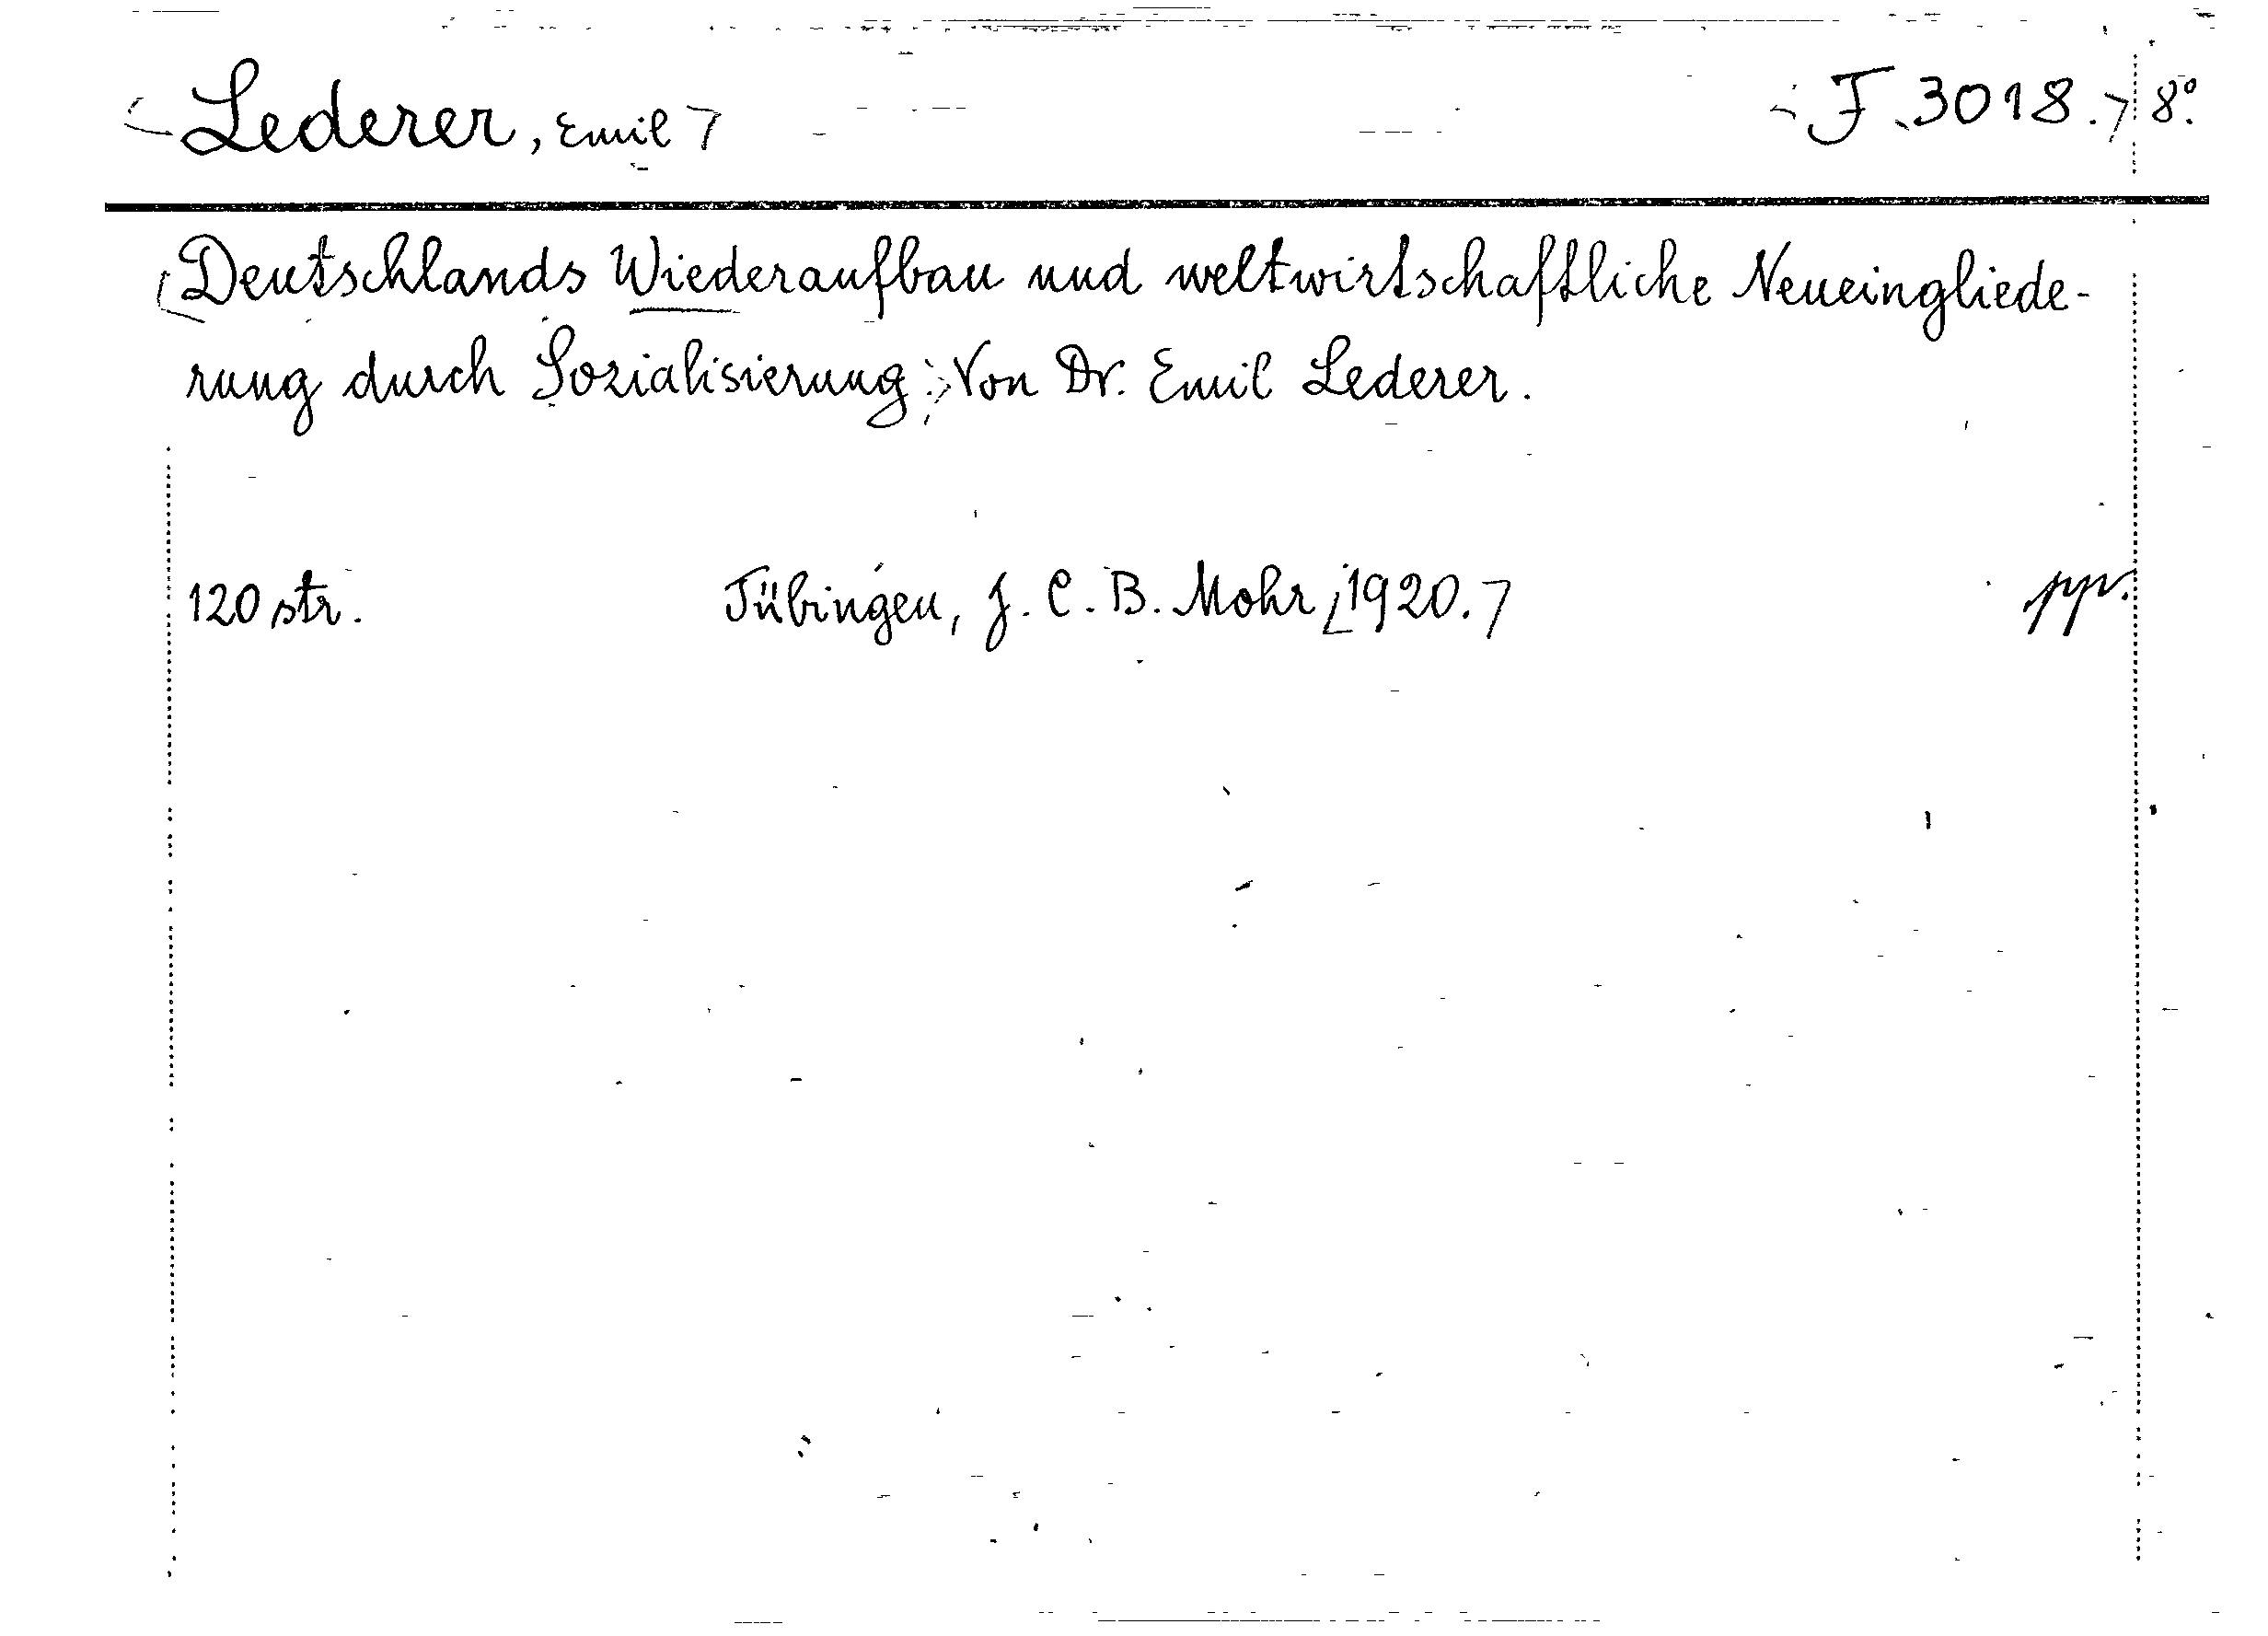 Lederer, Emil F. 3018. 8°.
Deutschlands Wiederaufbau und weltwirtschaftliche Neueingliede-
rung durch Sozialisierung. Von Dr. Emil Lederer.
120 str. Tübingen, J. C. B. Mohr, 1920. ppv.